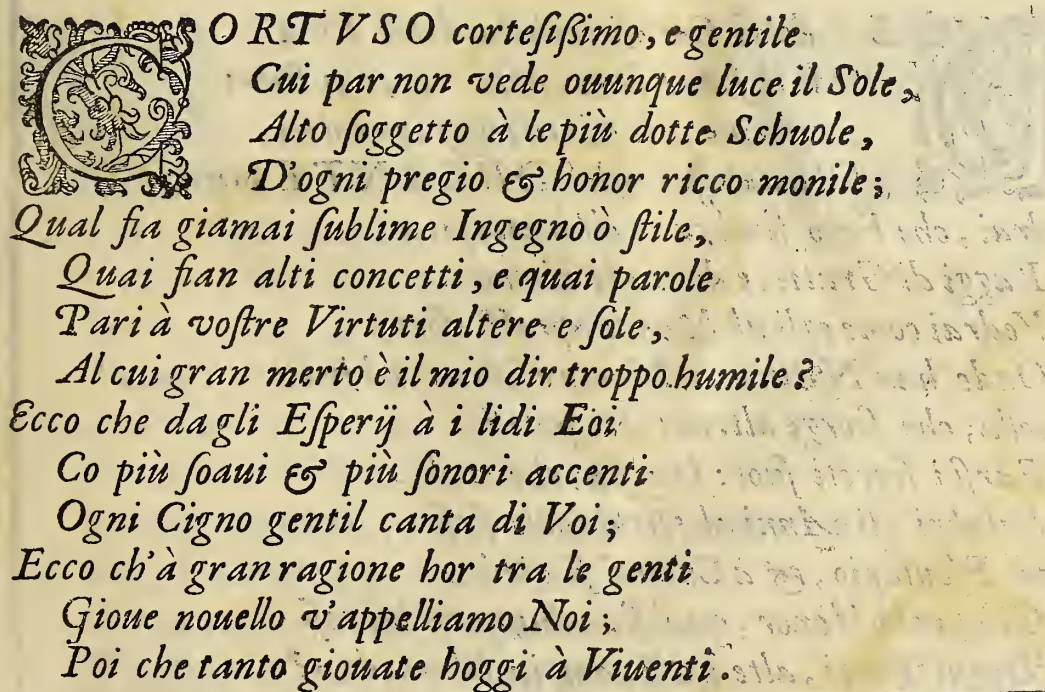 CORTVSO corteſiſſimo, e gentile
Cui par non vede ouunque luce il Sole,
Alto ſoggetto à le più dotte Schuole,
D'ogni pregio & honor ricco monile;
Qual fia giamai ſublime Ingegno ò ſtile,
Quai fian alti concetti, e quai parole
Pari à voſtre Virtuti altere e ſole,
Al cui gran merto è il mio dir troppo humile?
Ecco che da gli Eſperij à i lidi Eoi
Co più ſoaui & più ſonori accenti
Ogni Cigno gentil canta di Voi;
Ecco ch'à gran ragione hor tra le genti
Gioue nouello v'appelliamo Noi;
Poi che tanto giouate hoggi à Viuenti.